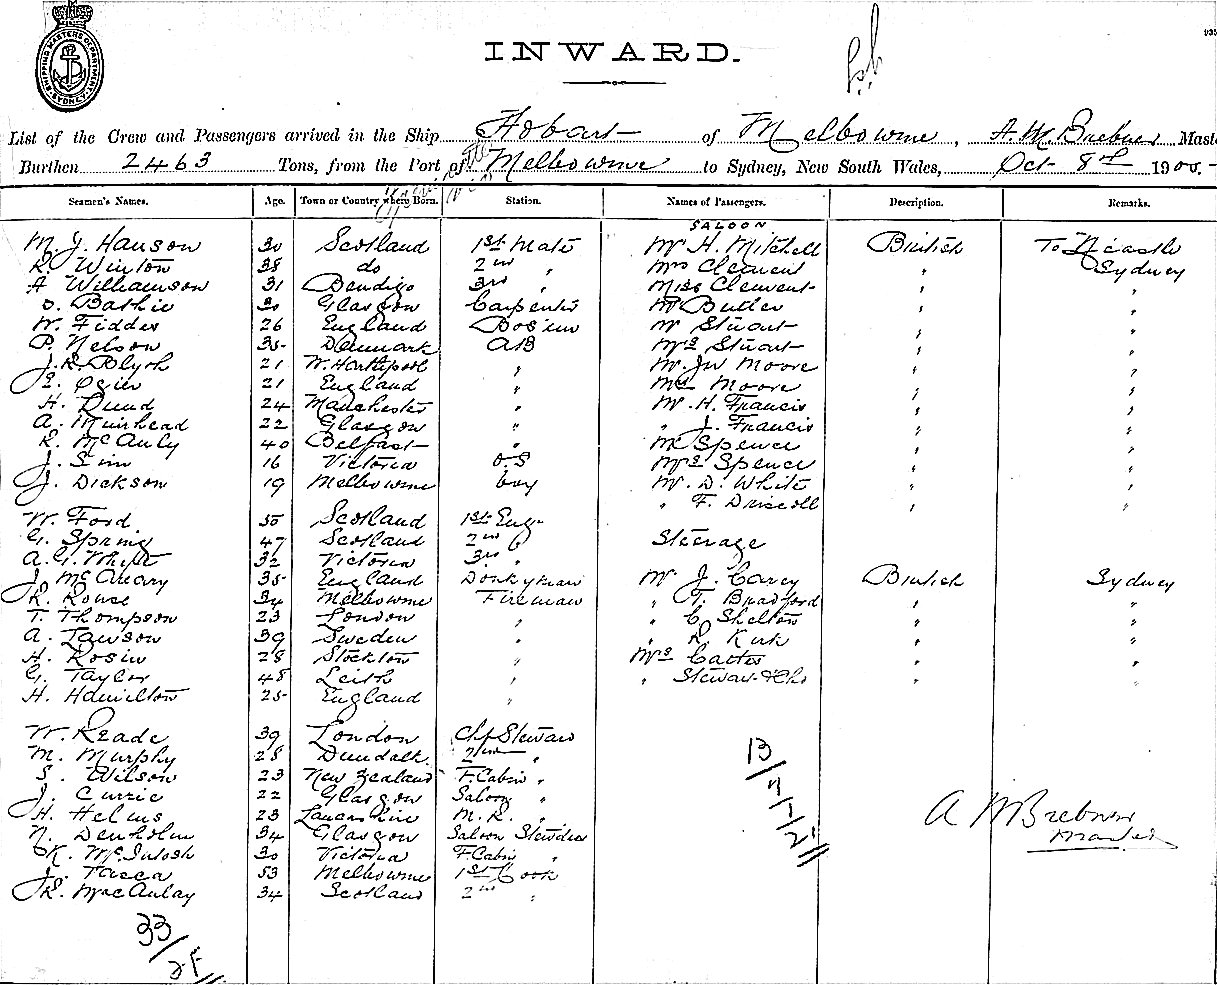 SHIPPING MASTERS DEPARTMENT SYDNEY
INWARD.
List of the Crew and Passengers arrived in the Ship Hobart of Melbourne, A. M. Brebner Maste
Burthen 2463 Tons, from the Port of Melbourne to Sydney, New South Wales, Oct 8th 1900.
Seamen's Names. Age. Town or Country where Born. Station. Names of Passengers. Description. Remarks.
SALOON
M. J. Hanson 30 Scotland 1st Mate Mr H. Mitchell British To Ncastle
R. Winton 38 do 2nd " Mrs Clement " Sydney
A Williamson 31 Bendigo 3rd " Miss Clement " "
Bathie 30 Glasgow Carpenter Mr Butler " "
W. Fiddes 26 England Bos'un Mr Stuart " "
P. Nelson 35 Denmark AB Mrs Stuart " "
J. R. Blyth 21 W. Hartlepool " Mr. Jno Moore " "
21 England " Moore " "
H. Dund 24 Manchester " Mr. H. Francis " "
A. Muirhead 22 Glasgow " " J. Francis " "
R. McAuly 40 Belfast " Mr Spence " "
J. Sim 16 Victoria O.S Mrs Spence " "
J. Dickson 19 Melbourne boy Mr. D. White " "
" F. Driscoll " "
W. Ford 50 Scotland 1st Eng.
G. Spring 47 Scotland 2nd " Steerage
A. G. Whyte 32 Victoria 3rd "
J. McCreary 35 England Donkyman Mr J. Carey British Sydney
R. Rouse 34 Melbourne Fireman " T. Bradford " "
T. Thompson 23 London " " C. Shelton " "
A. Lawson 39 Sweden " " R. Kirk " "
H. Rosin 28 Stockton " Mrs Catter " "
G. Taylor 48 Leith " " Stewart & Chd " "
H. Hamilton 25 England "
W. Reade 39 London Chf Steward
M. Murphy 28 Dundalk 2nd "
S. Wilson 23 New Zealand F. Cabin "
J. Currie 22 Glasgow Saloon "
H. Helms 23 Lancashire M. R. "
N. Denholm 34 Glasgow Saloon Stewdess
K. McIntosh 30 Victoria F. Cabin "
J. Tacca 53 Melbourne 1st Cook
R. MacAulay 34 Scotland 2nd "
A M Brebner
Master
33
13